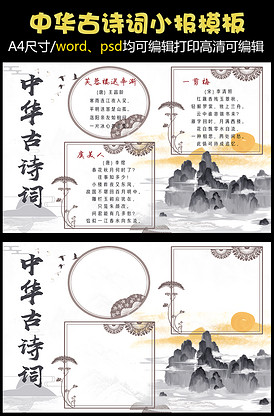 中华古诗词小报模板
A4尺寸/word、psd均可编辑打印高清可编辑
中华古诗词
芙蓉楼送辛渐
(唐) 王昌龄
寒雨连江夜入吴,
平明送客楚山孤。
洛阳亲友如相问,
一片冰心
虞美人
(唐) 李煜
春花秋月何时了?
往事知多少!
小楼昨夜又东风,
故国不堪回首月明中。
雕栏玉砌应犹在,
只是朱颜改。
问君能有几多愁?
恰似一江春水向东流。
一剪梅
(宋) 李清照
红藕香残玉簟秋。
轻解罗裳, 独上兰舟。
云中谁寄锦书来?
雁字回时, 月满西楼。
花自飘零水自流。
一种相思, 两处闲愁。
此情无计可消除,
中华古诗词